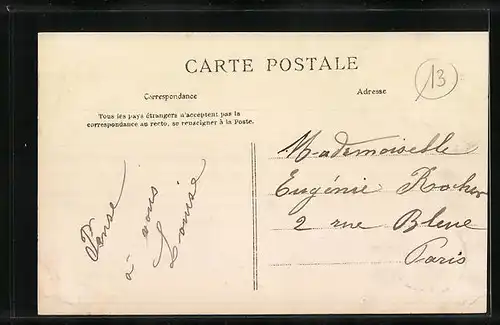 CARTE POSTALE
13
Correspondance
Adresse
Tous les pays étrangers n'acceptent pas la
correspondance au recto, se renseigner à la Poste.
Pense
à vous
Louise
Mademoiselle
Eugénie Rocher
2 rue Bleue
Paris